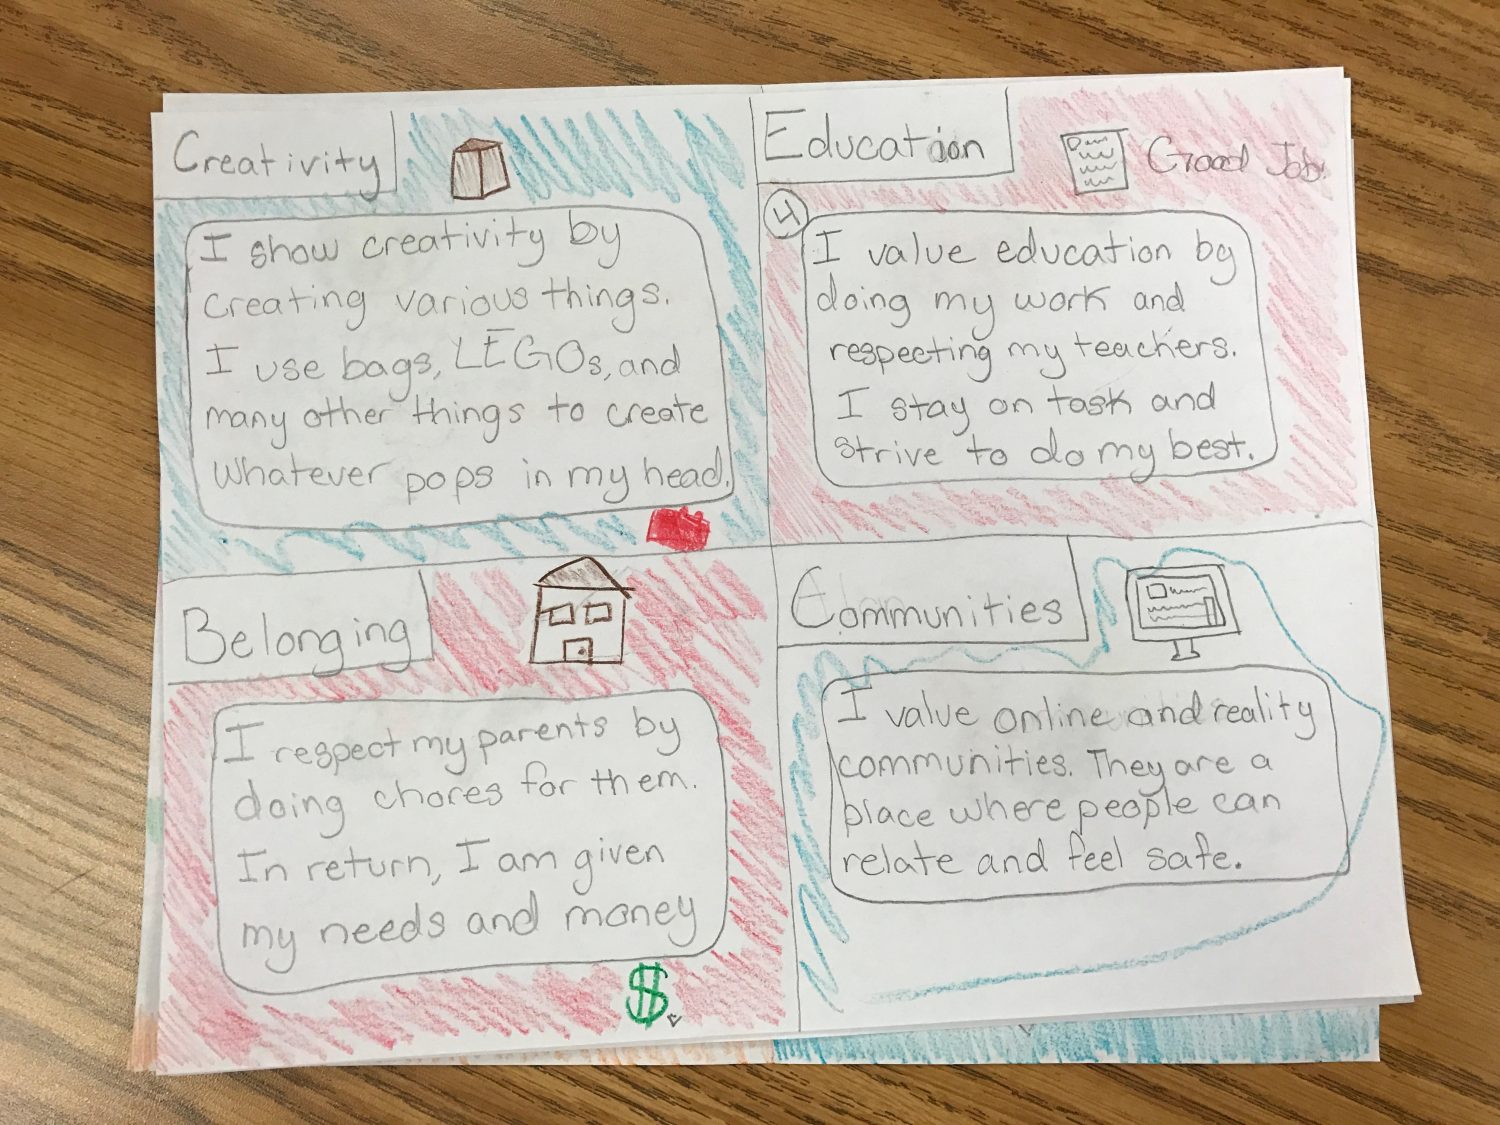 Creativity
I show creativity by
creating various things.
I use bags, LEGOs, and
many other things to create
whatever pops in my head.
Education
Good Job!
4
I value education by
doing my work and
respecting my teachers.
I stay on task and
strive to do my best.
Belonging
I respect my parents by
doing chores for them.
In return, I am given
my needs and money
$
Communities
I value online and reality
communities. They are a
place where people can
relate and feel safe.